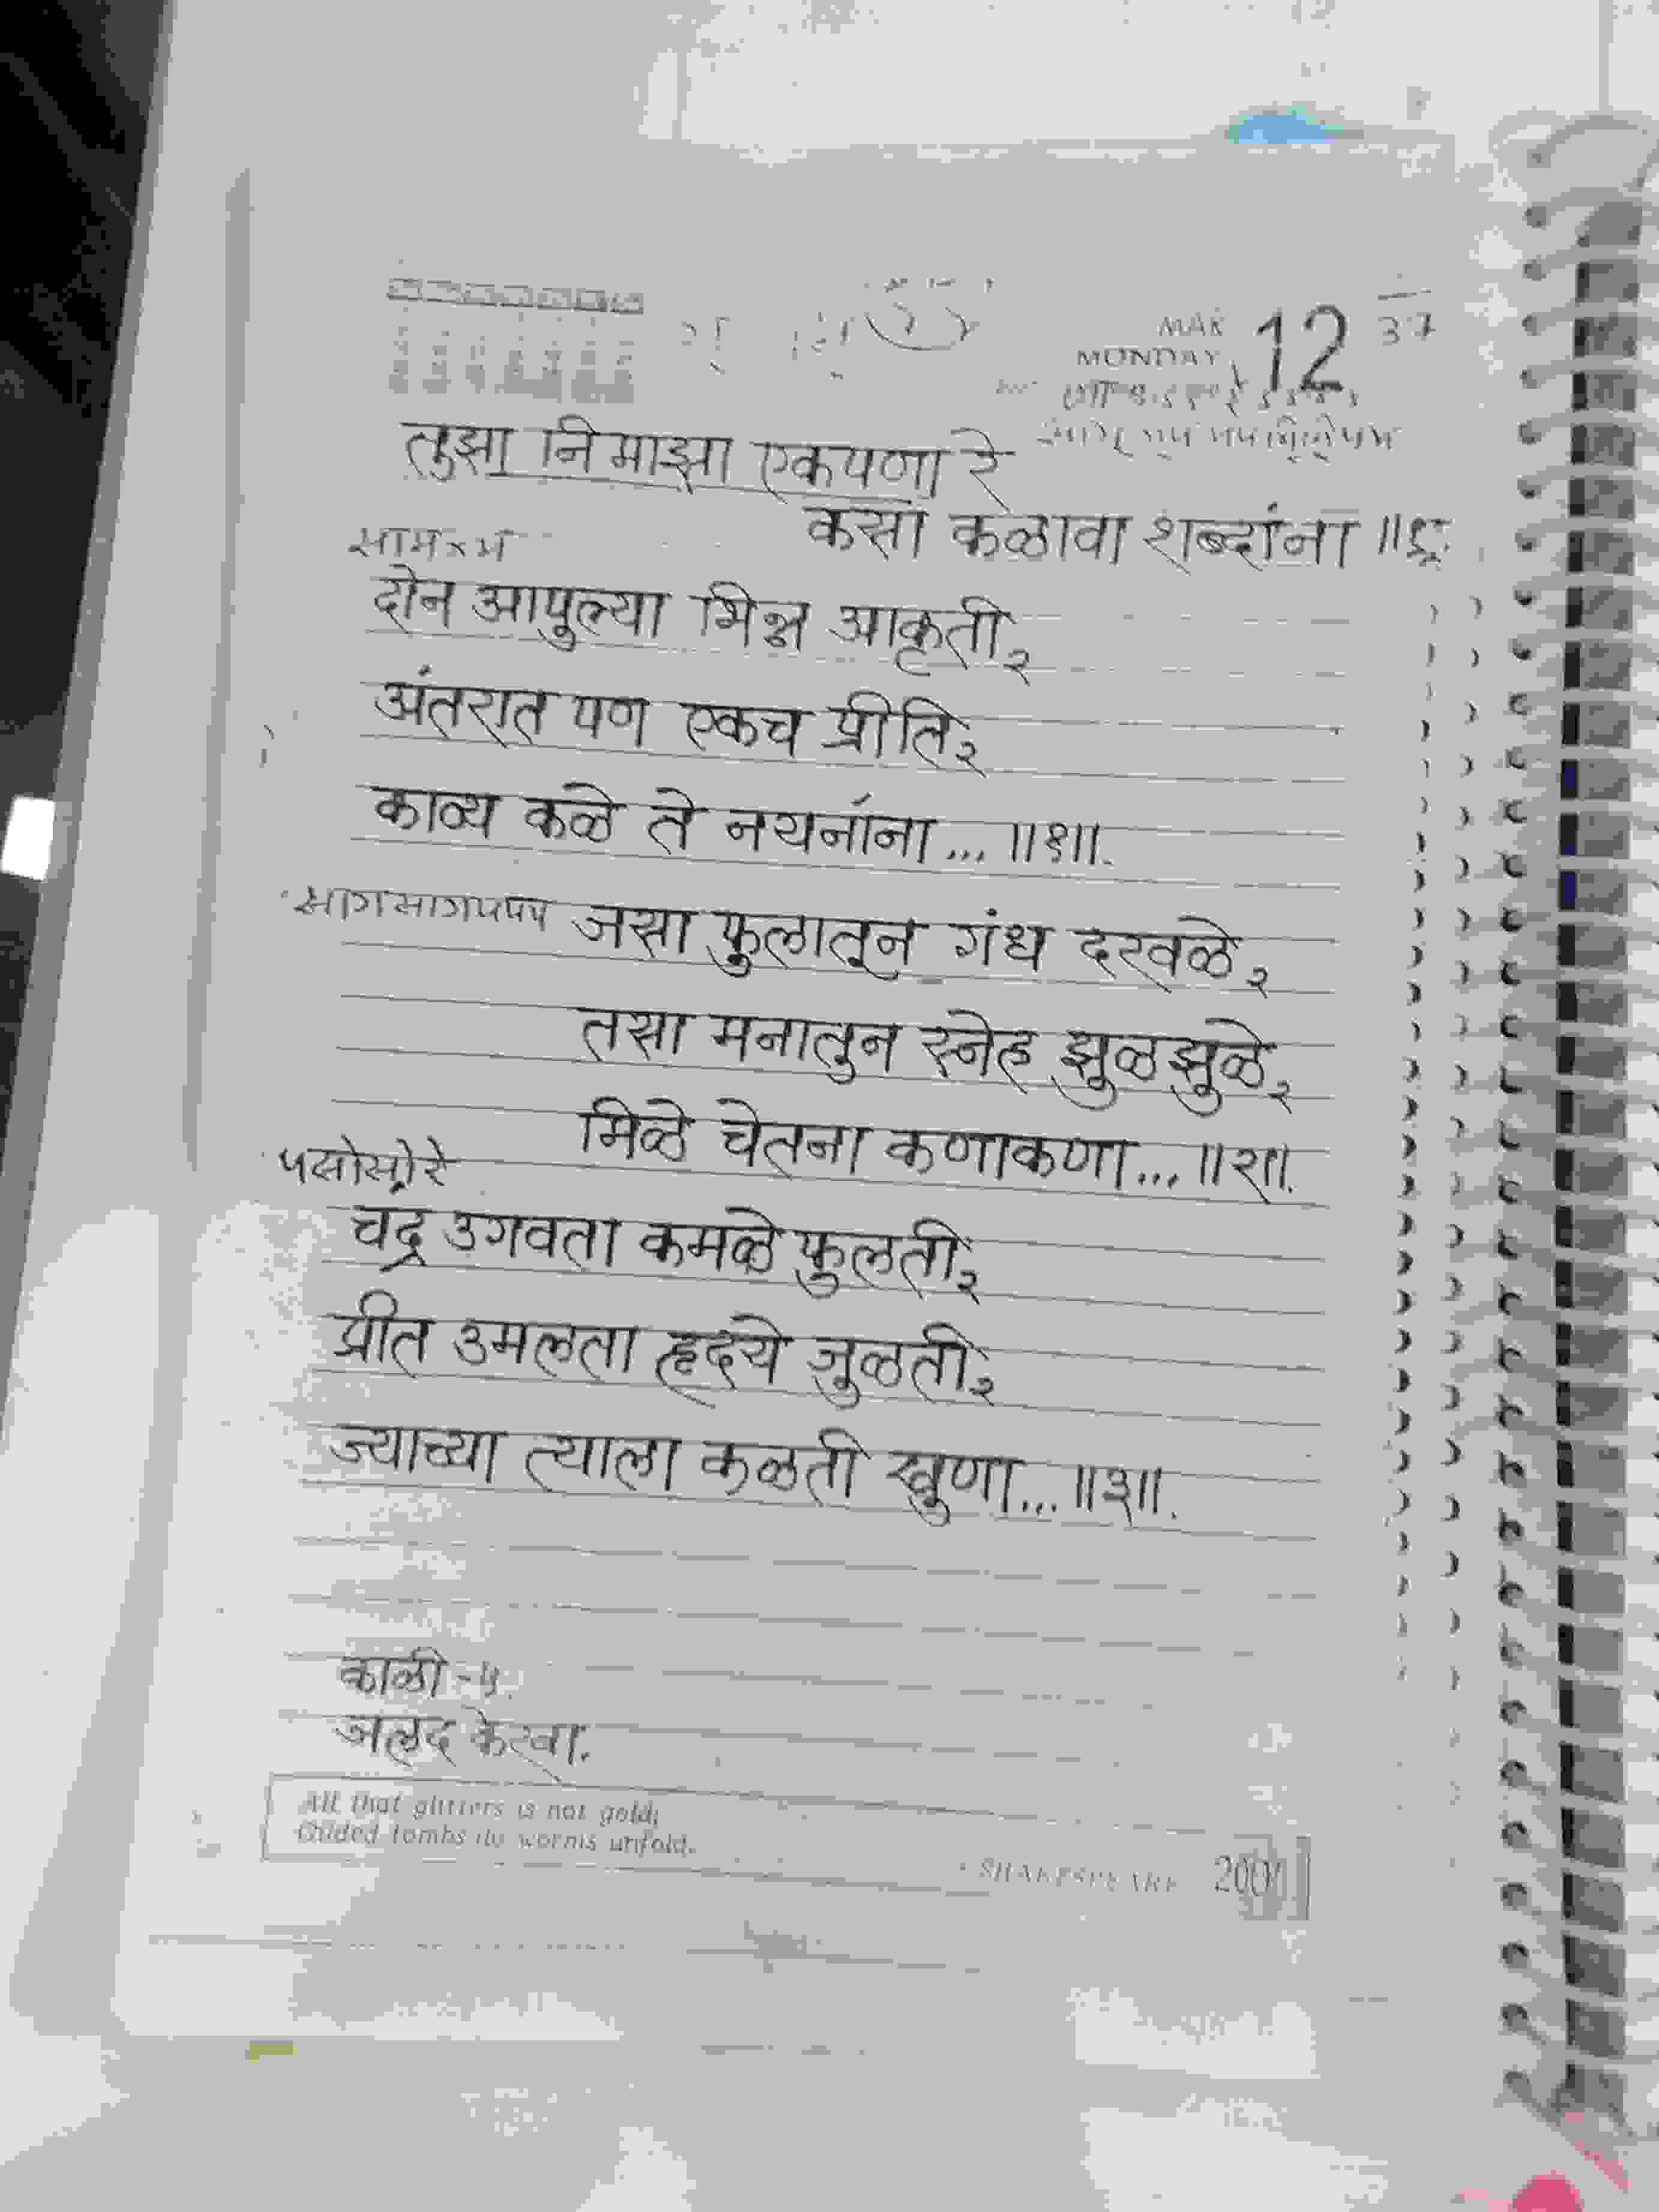 MAR 12 37
MONDAY
तुझा नि माझा एकपणा रे
कसा कळावा शब्दांना ॥धृ.
दोन आपुल्या भिन्न आकृती२
अंतरात पण एकच प्रीति२
काव्य कळे ते नयनांना... ॥१॥.
जसा फुलातून गंध दरवळे२
तसा मनातुन स्नेह झुळझुळे२
मिळे चेतना कणाकणा... ॥२॥.
पसोसोरे
चद्र उगवता कमळे फुलती२
प्रीत उमलता हृदये जुळती२
ज्याच्या त्याला कळती खुणा... ॥३॥.
काळी -५
जलद केरवा.
All that glitters is not gold;
Gilded tombs do worms unfold.
- SHAKESPEARE 2001